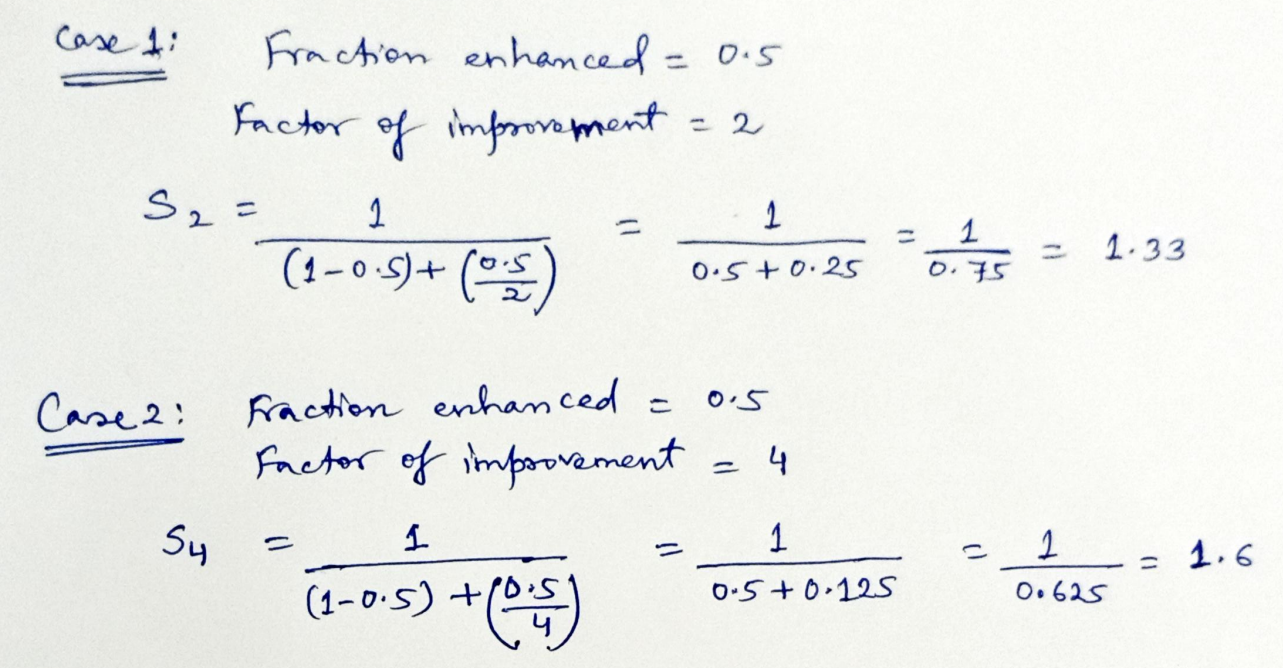 Case 1: Fraction enhanced = 0.5
Factor of improvement = 2
S₂ = 1/((1-0.5)+(0.5/2)) = 1/(0.5+0.25) = 1/0.75 = 1.33
Case 2: Fraction enhanced = 0.5
Factor of improvement = 4
S₄ = 1/((1-0.5)+(0.5/4)) = 1/(0.5+0.125) = 1/0.625 = 1.6